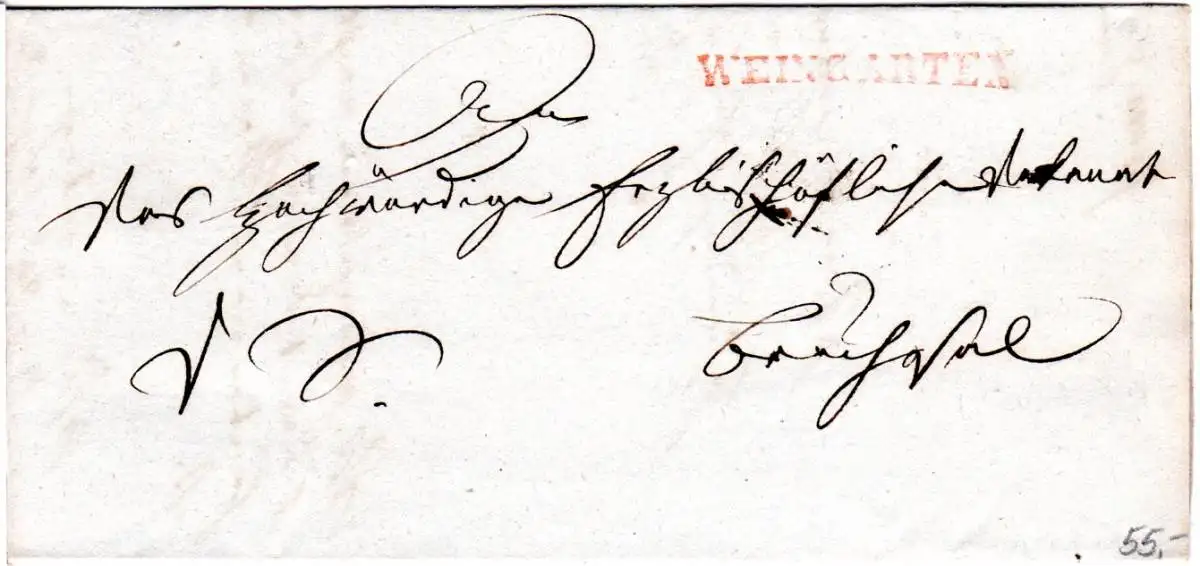 WEINGARTEN
An
das Hochwürdige Erzbischöfliche Dekanat
Bruchsal
55,-